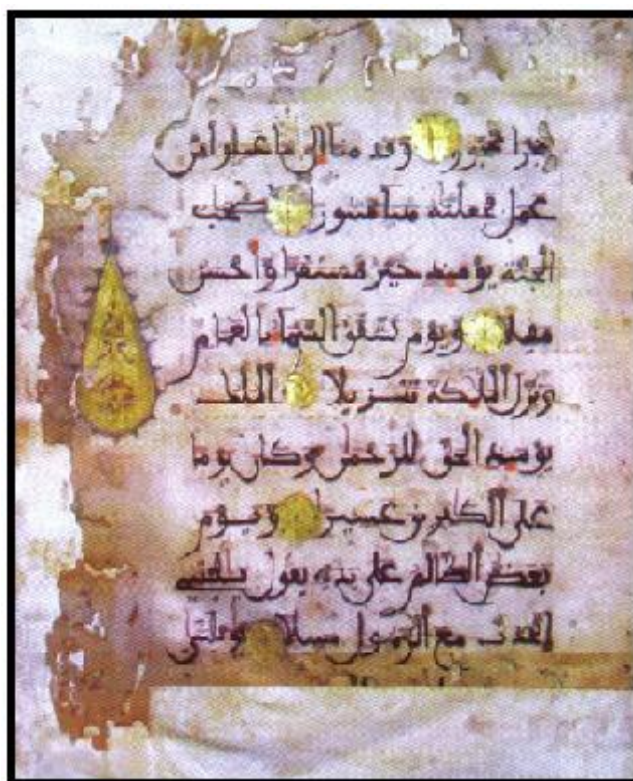 حجرا محجورا وقدمنا إلى ما عملوا من
عمل فجعلنه هبا منثورا أصحب
الجنة يومئذ خير مستقرا وأحسن
مقيلا ويوم تشقق السما بالغمم
ونزل الملئكة تنزيلا الملك
يومئذ الحق للرحمن وكان يوما
على الكفرين عسيرا ويوم
يعض الظالم على يديه يقول يليتني
اتخذت مع الرسول سبيلا يويلتى